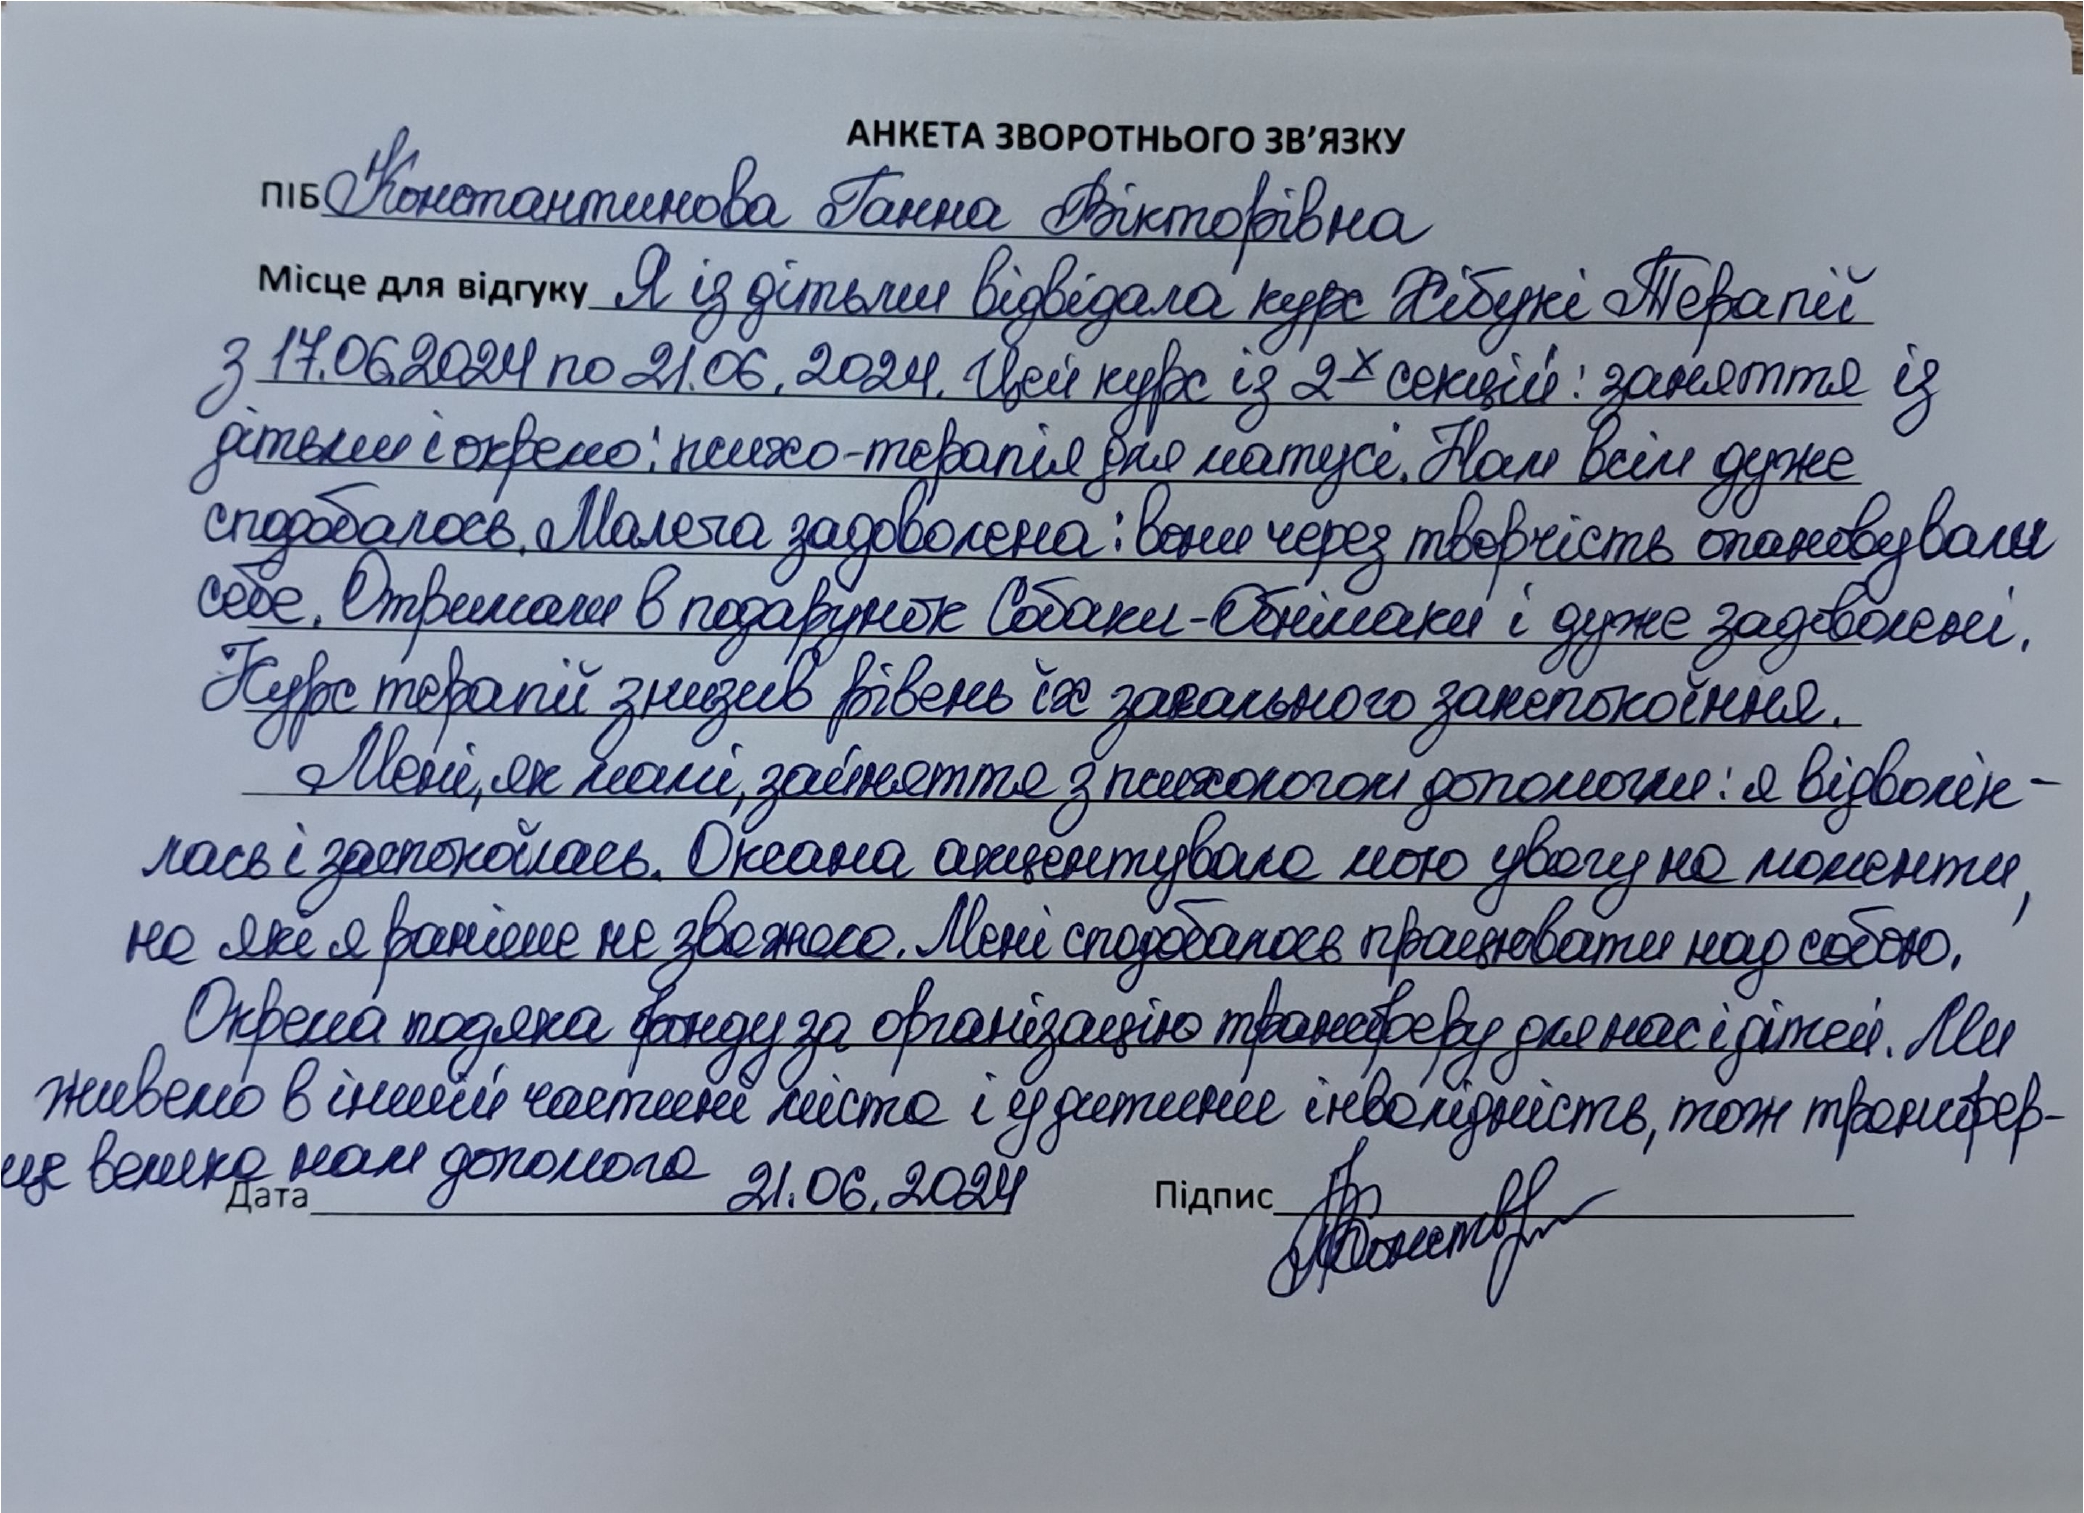 АНКЕТА ЗВОРОТНЬОГО ЗВ’ЯЗКУ
ПІБ Константинова Ганна Вікторівна
Місце для відгуку Я із дітьми відвідала курс Хібукі Терапії
з 17.06.2024 по 21.06.2024. Цей курс із 2х секцій: заняття із
дітьми і окремо: психо-терапія для матусі. Нам всім дуже
сподобалось. Малеча задоволена: вони через творчість опановували
себе. Отримали в подарунок Собаки-Обнімаки і дуже задоволені.
Курс терапії знизив рівень їх загального занепокоїння.
Мені, як мамі, зайняття з психологом допомогли: я відволік-
лась і заспокоїлась. Оксана акцентувала мою увагу на моменти,
на які я раніше не зважала. Мені сподобалось працювати над собою.
Окрема подяка фонду за організацію трансферу для нас і дітей. Ми
живемо в іншій частині міста і у дитини інвалідність, тож трансфер-
це велика нам допомога
Дата 21.06.2024 Підпис